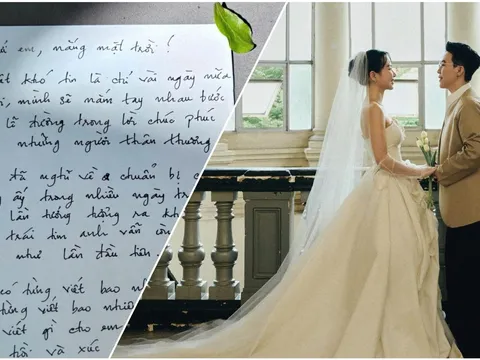 em, nắng mặt trời !
khó tin là chỉ vài ngày nữa
mình sẽ nắm tay nhau bước
lễ đường trong lời chúc phúc
những người thân thương
đã nghĩ và chuẩn bị
ấy trong nhiều ngày
lần tưởng tượng ra
trái tim anh vẫn
như lần đầu tiên.
có từng viết bao
từng viết bao nhiêu
viết gì cho em
hồi và xúc